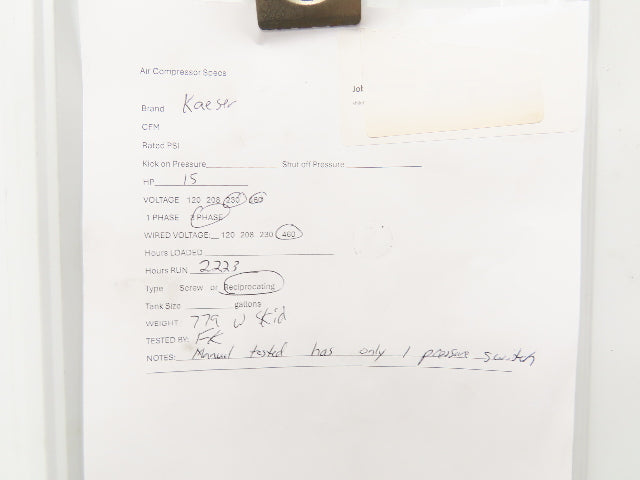 Air Compressor Specs
Job
Brand Kaeser
CFM
Rated PSI
Kick on Pressure Shut off Pressure
HP 15
VOLTAGE 120 208 230 460
1 PHASE 3 PHASE
WIRED VOLTAGE: 120 208 230 460
Hours LOADED
Hours RUN 2223
Type Screw or Reciprocating
Tank Size gallons
WEIGHT 779 w skid
TESTED BY: FK
NOTES: Manual tested has only 1 pressure switch